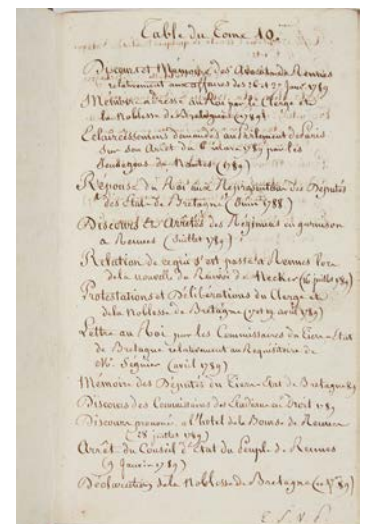 Table du Tome 10.
Discours et Mémoire des Avocats de Rennes
relativement aux affaires des 26 et 27 Janv. 1789
Mémoire adressé au Roi par le Clergé et
la Noblesse de Bretagne (1789)
Eclaircissemens demandés au Parlement de Paris
sur son Arrêt du 6 mars 1789 par les
de Nantes (1789)
Réponse du Roi aux Représentations des Députés
des Etats de Bretagne (1788)
Discours & Arrêtés des Régimens en garnison
a Rennes (Juillet 1789)
Relation de ce qui s'est passé a Rennes lors
de la nouvelle du Renvoi de Necker (16 juillet 1789)
Protestations et Délibérations du Clergé et
de la Noblesse de Bretagne (et 19 avril 1789)
Lettre au Roi par les Commissaires du Tiers-Etat
de Bretagne relativement au Requisitoire de
M. Séguier (avril 1789)
Mémoire des Députés du Tiers-Etat de Bretagne 89
Discours des Commissaires des Etudians en Droit 1789
Discours prononcé a l'hotel de la Bourse de Rennes
(28 juillet 1789)
Arrêt du Conseil d'Etat du Peuple de Rennes
(9 Janvier 1789)
Déclaration de la Noblesse de Bretagne